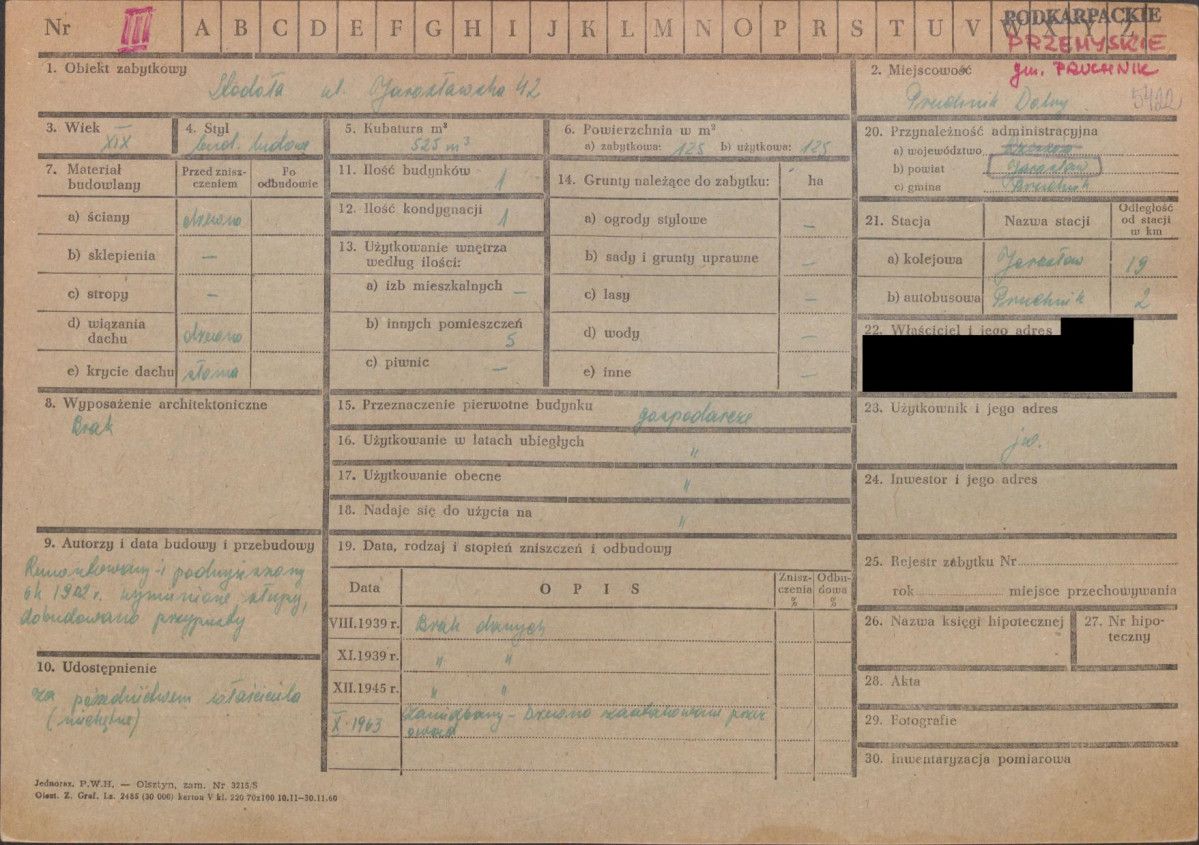 Nr III A B C D E F G H I J K L M N O P R S T U V W X Y Z
PODKARPACKIE
PRZEMYSKIE
gm. PRUCHNIK
1. Obiekt zabytkowy
Stodoła ul. Jarosławska 42
2. Miejscowość
Pruchnik Dolny
5422
3. Wiek
XIX
4. Styl
bud. ludowe
5. Kubatura m³
525 m³
6. Powierzchnia w m²
a) zabytkowa: 125 b) użytkowa: 125
7. Materiał budowlany
Przed zniszczeniem
Po odbudowie
a) ściany drewno
b) sklepienia –
c) stropy –
d) wiązania dachu drewno
e) krycie dachu słoma
8. Wyposażenie architektoniczne
Brak
9. Autorzy i data budowy i przebudowy
Remontowany i podwyższony
ok 1922 r. wymienione słupy,
dobudowano przypusty
10. Udostępnienie
za pośrednictwem właściciela
(niechętne)
11. Ilość budynków
1
12. Ilość kondygnacji
1
13. Użytkowanie wnętrza
według ilości:
a) izb mieszkalnych –
b) innych pomieszczeń
5
c) piwnic –
14. Grunty należące do zabytku: ha
a) ogrody stylowe –
b) sady i grunty uprawne –
c) lasy –
d) wody –
e) inne –
15. Przeznaczenie pierwotne budynku gospodarcze
16. Użytkowanie w latach ubiegłych "
17. Użytkowanie obecne "
18. Nadaje się do użycia na "
19. Data, rodzaj i stopień zniszczeń i odbudowy
Data OPIS Zniszczenia % Odbudowa %
VIII.1939 r. Brak danych
XI.1939 r. " "
XII.1945 r. " "
X-1963 Zaniedbany – Drewno zaatakowane przez
owada
20. Przynależność administracyjna
a) województwo Rzeszów
b) powiat Jarosław
c) gmina Pruchnik
21. Stacja Nazwa stacji Odległość od stacji w km
a) kolejowa Jarosław 19
b) autobusowa Pruchnik 2
22. Właściciel i jego adres
23. Użytkownik i jego adres
jw.
24. Inwestor i jego adres
25. Rejestr zabytku Nr
rok miejsce przechowywania
26. Nazwa księgi hipotecznej
27. Nr hipoteczny
28. Akta
29. Fotografie
30. Inwentaryzacja pomiarowa
Jednoraz. P.W.H. — Olsztyn, zam. Nr 3215/S
Olszt. Z. Graf. Lz. 2485 (30 000) karton V kl. 220 70x100 10.11—30.11.60